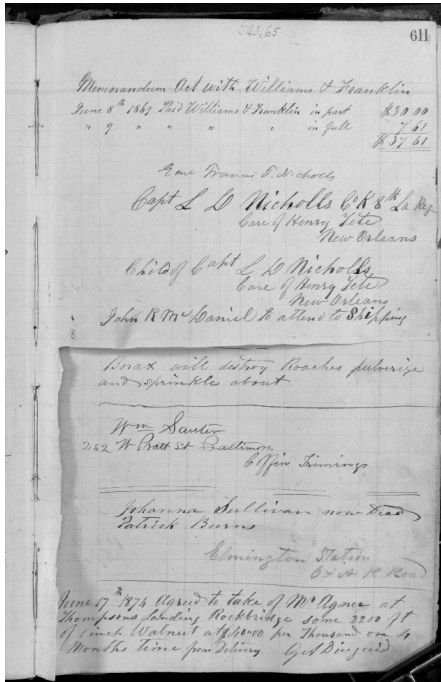 611
Memorandum Act with Williams & Franklin
June 8th 1869 Paid Williams & Franklin in part $30 00
" 9 " " " " in full 7 61
$37 61
Genl Francis T. Nicholls
Capt L D Nicholls Co K 8th La Reg
Care of Henry Tete
New Orleans
Child of Capt L D Nicholls
Care of Henry Tete
New Orleans
John R McDaniel to attend to Shipping
Borax will distroy Roaches pulverize
and sprinkle about
Wm Sauter
252 W Pratt St Baltimore
Coffin Trimings
Johanna Sullivan now Dead
Patrick Burns
Elmington Station
O & A R Road
June 17th 1874 Agreed to take of Mr Agner at
Thompsons Landing Rockbridge some 2200 ft
of 1 inch Walnut at $40.00 per Thousand on 4
Months time from Delivery